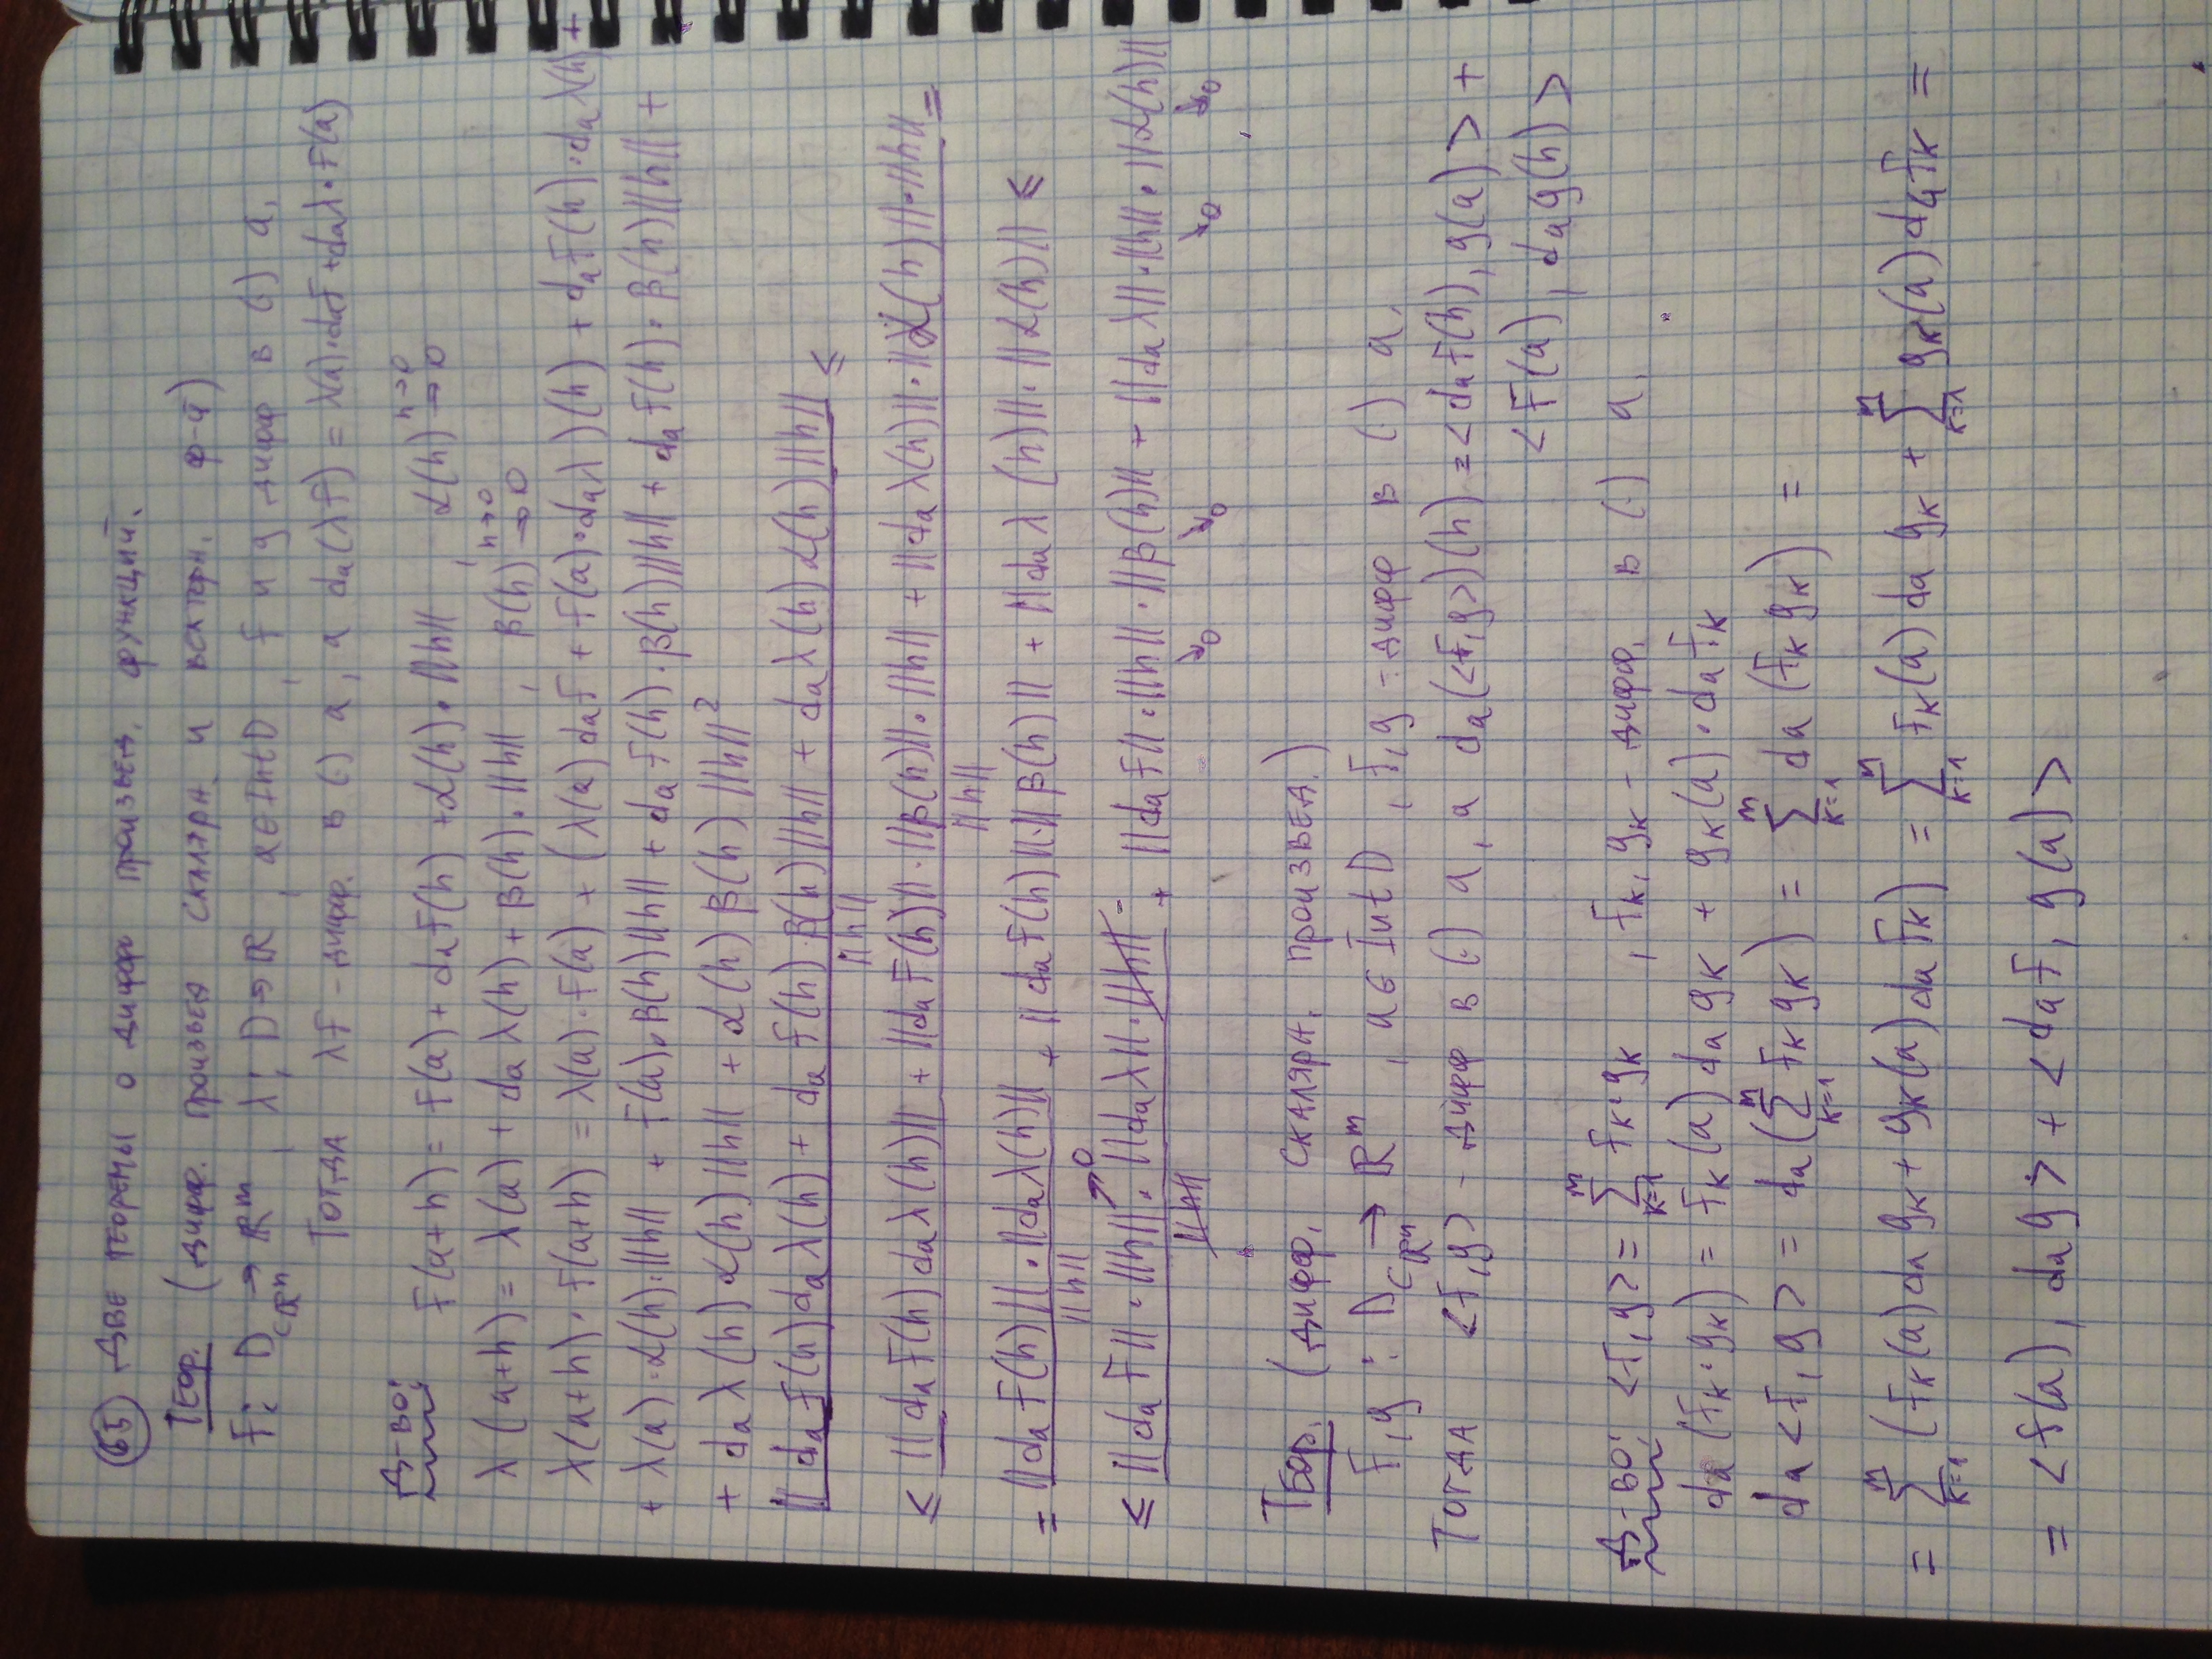 65 ДВЕ ТЕОРЕМЫ О ДИФФ ПРОИЗВЕД. ФУНКЦИЙ.
ТЕОР. (ДИФФ. ПРОИЗВЕД СКАЛЯРН. И ВЕКТОРН. Ф-Й)
f: D⊂ℝⁿ → ℝᵐ, λ: D → ℝ, a ∈ Int D, f и g дифф в (·) a.
ТОГДА λf – дифф. в (·) a, а dₐ(λf) = λ(a)·dₐf + dₐλ·f(a)
Д-ВО: f(a+h) = f(a) + dₐf(h) + α(h)·||h||, α(h) → 0 h→0
λ(a+h) = λ(a) + dₐλ(h) + β(h)·||h||, β(h) → 0 h→0
λ(a+h)·f(a+h) = λ(a)·f(a) + (λ(a)dₐf + f(a)·dₐλ)(h) + dₐf(h)·dₐλ(h) +
+ λ(a)·α(h)·||h|| + f(a)·β(h)||h|| + dₐf(h)·β(h)||h|| + dₐf(h)·β(h)||h|| +
+ dₐλ(h)α(h)||h|| + α(h)β(h)||h||²
|| dₐf(h)dₐλ(h) + dₐf(h)·β(h)||h|| + dₐλ(h)α(h)||h|| ≤
||h||
≤ ||dₐf(h)dₐλ(h)|| + ||dₐf(h)||·||β(h)||·||h|| + ||dₐλ(h)||·||α(h)||·||h|| =
||h||
= ||dₐf(h)||·||dₐλ(h)|| + ||dₐf(h)||·||β(h)|| + ||dₐλ(h)||·||α(h)|| ≤
||h||
→0
≤ ||dₐf||·||h||·||dₐλ||·||h|| + ||dₐf||·||h||·||β(h)|| + ||dₐλ||·||h||·||α(h)||
||h|| →0 →0 →0 →0
ТЕОР. (ДИФФ. СКАЛЯРН. ПРОИЗВЕД.)
f,g : D⊂ℝⁿ → ℝᵐ, a ∈ Int D, f,g – дифф в (·) a.
ТОГДА <f,g> – дифф в (·) a, а dₐ(<f,g>)(h) = <dₐf(h), g(a)> +
<f(a), dₐg(h)>
Д-ВО: <f,g> = ∑ₖ₌₁ᵐ fₖ·gₖ, fₖ, gₖ – дифф. в (·) a.
dₐ(fₖ·gₖ) = fₖ(a)dₐgₖ + gₖ(a)·dₐfₖ
dₐ<f,g> = dₐ(∑ₖ₌₁ᵐ fₖgₖ) = ∑ₖ₌₁ᵐ dₐ(fₖgₖ) =
= ∑ₖ₌₁ᵐ (fₖ(a)dₐgₖ + gₖ(a)dₐfₖ) = ∑ₖ₌₁ᵐ fₖ(a)dₐgₖ + ∑ₖ₌₁ᵐ gₖ(a)dₐfₖ =
= <f(a), dₐg> + <dₐf, g(a)>